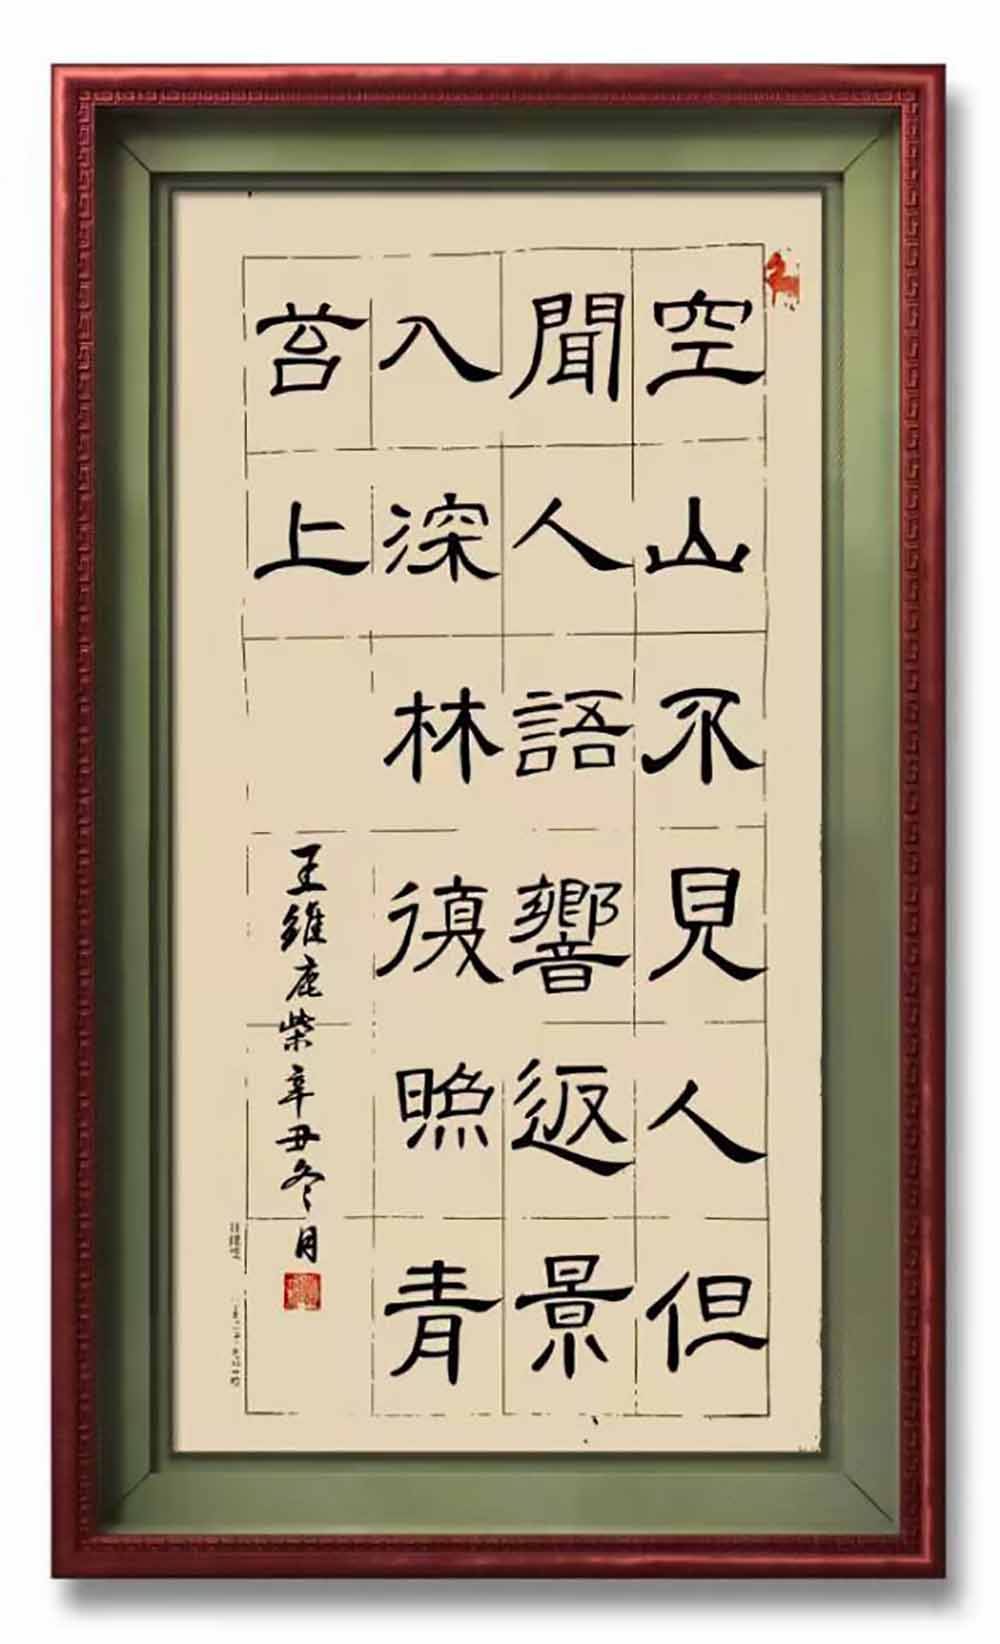 空山不見人但
聞人語響返景
入深林復照青
苔上
王維鹿柴辛丑冬月